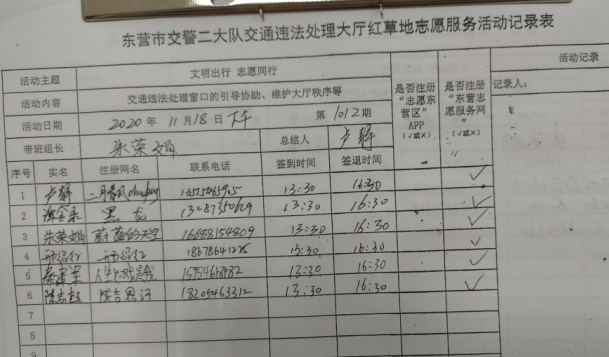 东营市交警二大队交通违法处理大厅红草地志愿服务活动记录表
活动主题 文明出行 志愿同行 是否注册“志愿东营区”APP（√或×） 是否注册“东营志愿服务网”（√或×） 活动记录
活动内容 交通违法处理窗口的引导协助、维护大厅秩序等 记录人：
活动日期 2020年11月18日下午 第1012期
带班组长 朱荣娟 总结人 卢静
序号 实名 注册网名 联系电话 签到时间 签退时间
1 卢静 二月春风 13:30 16:30 √
2 黑龙 13287350629 13:30 16:30 √
3 朱荣娟 蔚蓝的天空 16658154809 13:30 16:30 √
4 18678641228 13:30 16:30 √
5 13:30 16:30 √
6 成吉思汗 18205463312 13:30 16:30 √
7
8
9